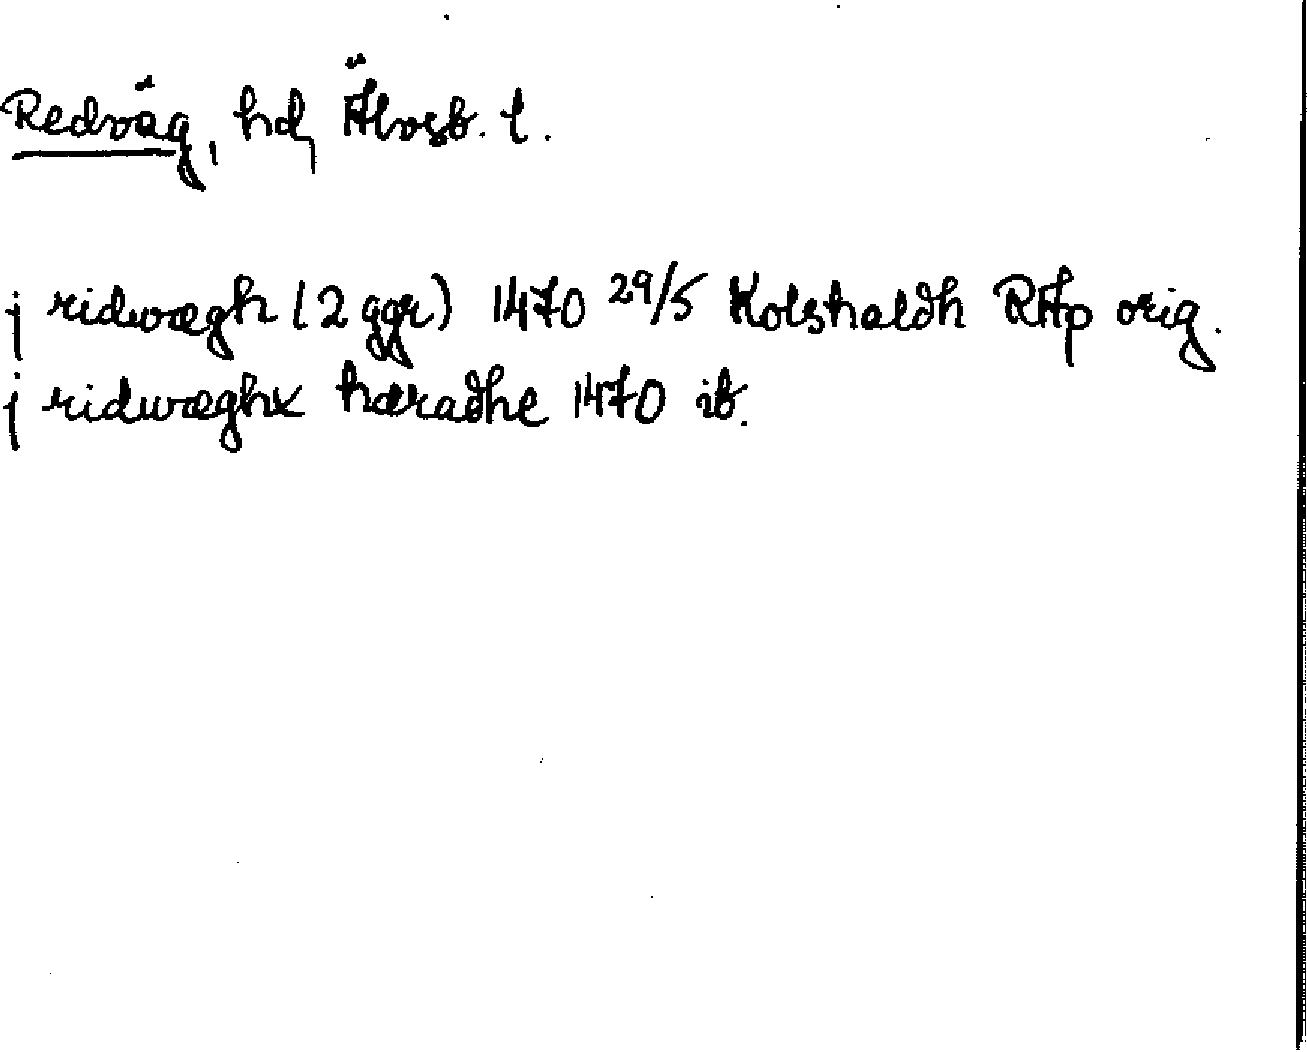 Redväg, hd, Älvsb. l.
j ridwægh (2 ggr) 1470 29/5 Kolshaldh RAp orig.
j ridwæghx hæradhe 1470 ib.